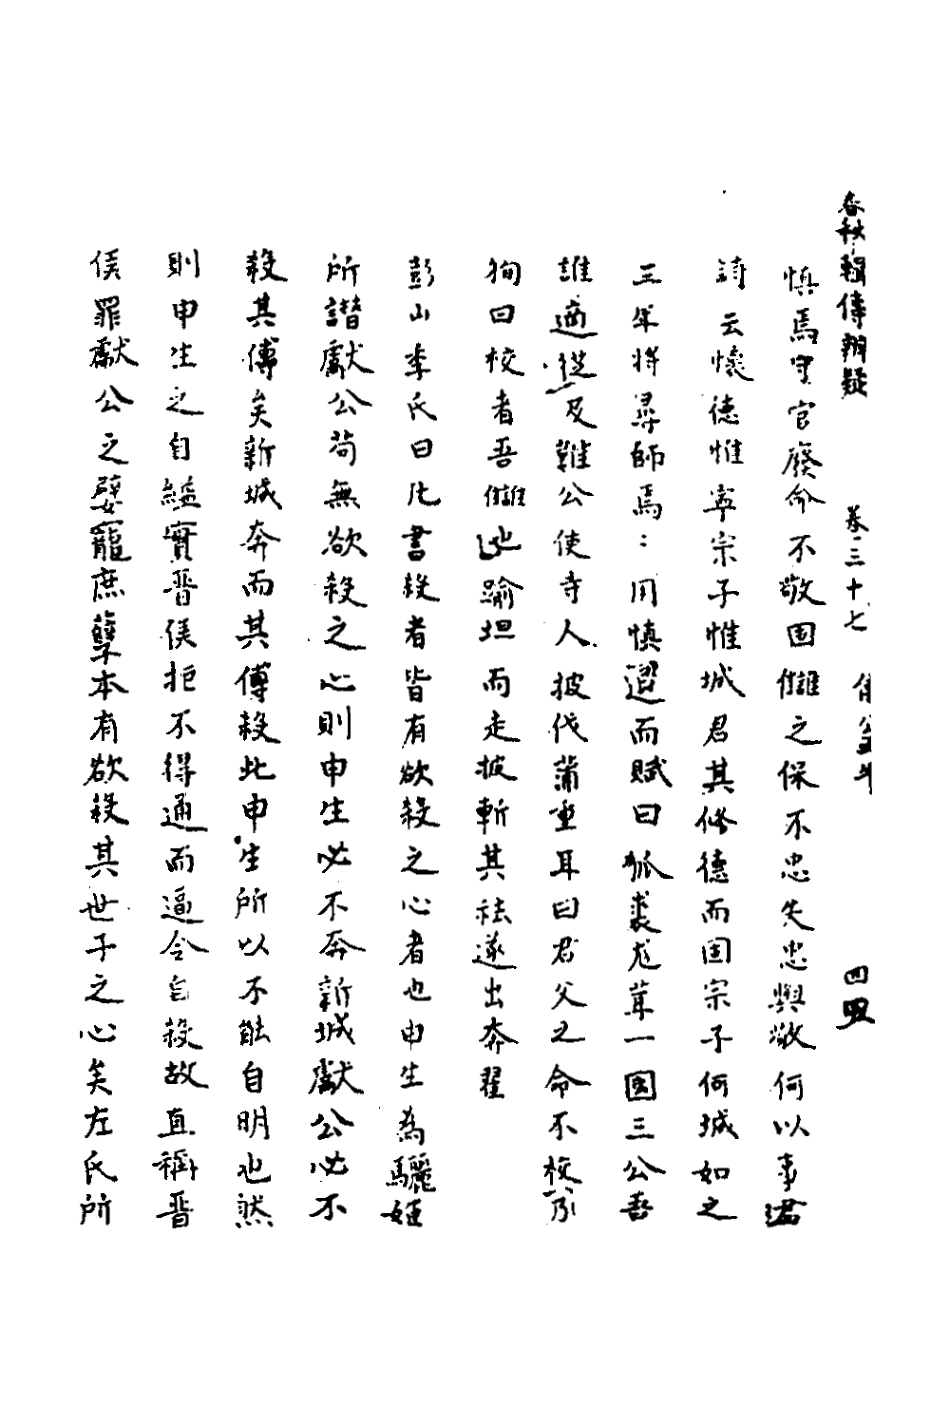 春秋輯傳辨疑 卷三十七 僖公五年 四四
慎焉守官廢命不敬固讎之保不忠失忠與敬何以事君
詩云懷德惟寧宗子惟城君其修德而固宗子何城如之
三年將尋師焉：用慎退而賦曰狐裘尨茸一國三公吾
誰適從及難公使寺人披伐蒲重耳曰君父之命不校乃
狥曰校者吾讎也踰垣而走披斬其袪遂出奔翟
彭山季氏曰凡書殺者皆有欲殺之心者也申生為驪姬
所譖獻公苟無欲殺之心則申生必不奔新城獻公必不
殺其傅矣新城奔而其傅殺此申生所以不能自明也然
則申生之自縊實晉侯拒不得通而逼令自殺故直稱晉
侯罪獻公之嬖寵庶孽本有欲殺其世子之心矣左氏所